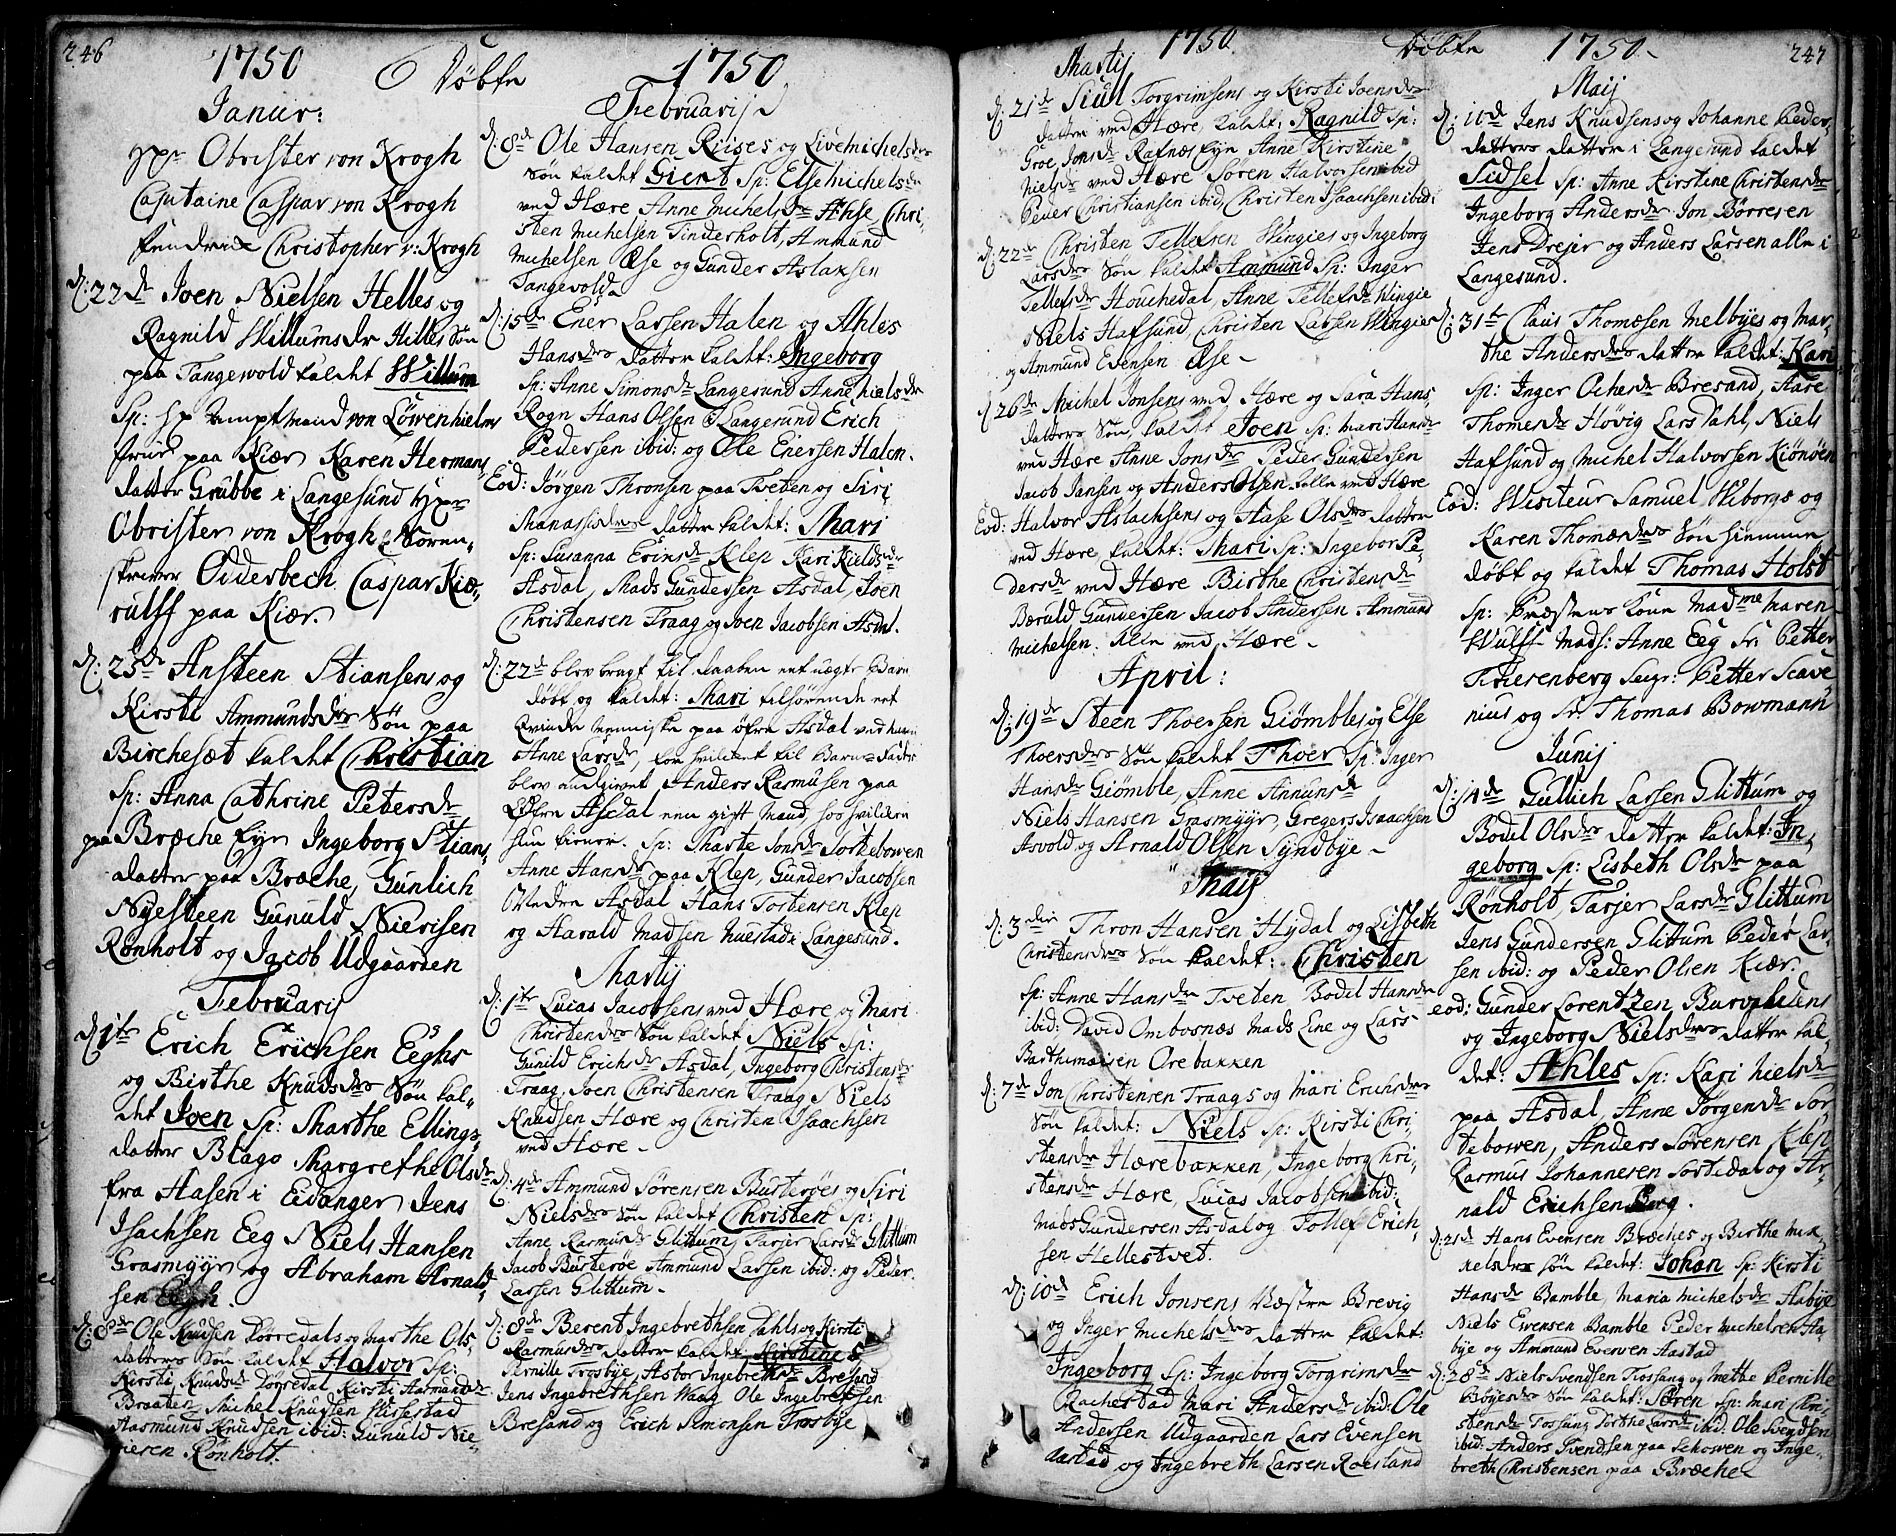 246
1750 Döbte 1750
Januar:
Hr Obrister von Krogh
Capitaine Caspar von Krogh
Christopher v: Krogh
d: 22de Joen Nielsen Helles og
Ragnild Willumsdr Hilles Sön
paa Tangevold kaldet Willum
Sp: von Löwenhielms
Frue paa Kiær Karen Hermans
datter Grubbe i Langesund
Obrister von Krogh Soren-
skriver Odderbech Caspar Kiæ-
rulff paa Kiær.
d: 25de Ansteen Stiansens og
Kirsti Ammundsdr Sön paa
Birchesæt kaldet Christian
Sp: Anna Cathrine Petersdr
paa Bræche Ingeborg Stians
datter paa Bræche, Gunlich
Nyesteen Gunuld Nierisen
Rönholt og Jacob Udgaarden
Februarij
d: 1te Erich Erichsen Eeghs
og Birthe Knudsdr Sön kal-
det Joen Sp: Marthe Ellings
datter Blago Margrethe Olsdr
fra Aasen i Eidanger Jens
Isachsen Eeg Niels Hansen
Grasmyyr og Abraham Arnald
sen Eegh.
d: 8de Ole Knudsen Dörredals og Marthe Ols
datters Sön kaldet Halvor Sp:
Kirsti Knudsdr Dörredal Kirsti Aamundsdr
Braaten, Michel Knudsen Hissestad
Aasmund Knudsen ibid: Gunuld Nie-
risen Rönholt.
Februarij
d: 8de Ole Hansen Riises og Live Michelsdr
Sön kaldet Giert Sp: Else Michelsdr
ved Hære Anne Michelsdr Ahse Chri-
sten Michelsen Tinderholt, Ammund
Michelsen Ose og Gunder Aslaksen
Tangevold
d: 15de Ener Larsen Halen og Ahles
Hansdrs datter kaldet: Ingeborg
Sp: Anne Simonsdr Langesund Anne Nielsdr
Rogn Hans Olsen Langesund Erich
Pedersen ibid: og Ole Enersen Halen.
Eod: Jörgen Thronsen paa Tveten og Siri
datter kaldet: Mari
Sp: Susanna Ericsdr Klep Kari Kieldsdr
Asdal, Mads Gundersen Asdal, Joen
Christensen Traag og Joen Jacobsen Asdal.
d: 22de blev bragt til daaben et uægte Barn
döbt og kaldet: Mari tilhörende et
Qvinde Menniske paa öfre Asdal ved navn
Anne Larsdr, for hvilcket til Barne Fader
blev audgivet Anders Rasmusen paa
Asdal een gift Mand, hos hvilcken
hun tiener. Sp: Marte Jonsdr Sortebowen
Anne Hansdr paa Klep, Gunder Jacobsen
Nedre Asdal Hans Tostensen Klep
og Harald Madsen Langesund.
Martij
d: 1te Lucas Jacobsens ved Hære og Mari
Christensdr Sön kaldet Niels Sp:
Gunild Erichsdr Asdal, Ingeborg Christensdr
Traag, Joen Christensen Traag Niels
Knudsen Hære og Christen Isaachsen
ved Hære.
d: 4de Ammund Sörensen Busteröes og Siri
Nielsdr Sön kaldet Christen Sp:
Anne Rasmusdr Glittum, Tarjer Larsdr Glittum
Jacob Busteröe Ammund Larsen ibid: og Peder
Larsen Glittum.
d: 8de Berent Ingebrethsen Dahls og Kirsti
Rasmusdr datter kaldet Kirstine
Pernille Trosbye, Asbor Ingebrethsdr Bresand
Jens Ingebrethsen Waag Ole Ingebrethsen
Bresand og Erich Simonsen Trosbye
1750 Döbte 1750 247
Martij
d: 21de Siul Torgrimsens og Kirsti Joensdr
datter ved Hære, kaldet: Ragnild Sp:
Groe Jonsdr Rafnæs Anne Kirstine
Nielsdr ved Hære Sören Halvorsen ibid
Peder Christiansen ibid, Christen Isaachsen ibid.
d: 22de Christen Tellefsen Wingies og Ingeborg
Larsdr Sön kaldet Ammund Sp: Inger
Tellefsdr Houchedal, Anne Tellefsdr Wingie
Niels Hafsund, Christen Larsen Wingie
og Ammund Evensen Ose
d: 26de Michel Jonsens ved Hære og Sara Hans-
datters Sön kaldet Joen Sp: Mari Hansdr
ved Hære Anne Jonsdr Peder Gundersen
Jacob Jansen og Anders Olsen alle ved Hære
Eod: Halvor Aslachsens og Aase Olsdrs datter
ved Hære kaldet: Mari Sp: Ingebor Pe-
dersdr ved Hære Birthe Christensdr
Bæruld Gundersen Jacob Andersen Ammund
Michelsen. Alle ved Hære.
April:
d: 19de Steen Thoersen Giömbles og Else
Thoersdrs Sön kaldet Thoer Sp: Inger
Hansdr Giömble, Anne Annunsdr
Niels Hansen Grasmyyr, Gregers Isaachsen
Asvold og Arnald Olsen Syndbye
Maij
d: 3die Thron Hansen Hydal og Lisbeth
Christensdrs Sön kaldet: Christen
Sp: Anne Hansdr Tveten Bodil Hansdr
ibid: David Ombosnæs Mads Eine og Lars
Barthumæisen Orebakken
d: 7de Jon Christensen Traags og Mari Erichsdrs
Sön kaldet: Niels Sp: Kirsti Chri-
stensdr Hærebakken, Ingeborg Chri-
stensdr Hære, Lucas Jacobsen ibid:
Mads Gundersen Asdal og Tollef Erich-
sen Hellestvet.
d: 10de Erich Jonsens Væstre Brevig
og Inger Michelsdrs datter kaldet:
Ingeborg Sp: Ingeborg Torgrimsdr
Rachestad Mari Andersdr ibid: Ole
Andersen Udgaarden Lars Evensen
Aastad og Ingebreth Larsen Roesland
Maij
d: 10de Jens Knudsens og Johanne Peder-
datters datter i Langesund kaldet
Sidsel Sp: Anne Kirstine Christensdr
Ingeborg Andersdr Jon Börresen
Jens Drejer og Anders Larsen alle i
Langesund.
d: 31te Claus Thomæsen Melbyes og Mar-
the Andersdrs datter kaldet: Kari
Sp: Inger Ochersdr Bresand, Aase
Thomesdr Höwig Lars Dahl, Niels
Hafsund og Michel Halvorsen Kiönöen
Eod: Visiteur Samuel Wiborgs og
Karen Thomædrs Sön hiemme
döbt og kaldet Thomas Holst
Sp: Præstens Kone Madme Maren
Wulff Mads: Anne Eeg Sr: Petter
Fierenberg Petter Scave
nius og Sr. Thomas Bowmann
Junij
d: 14de Gullich Larsen Glittum og
Bodel Olsdrs datter kaldet: In-
geborg Sp: Lisbeth Olsdr paa
Rönholt, Tarjer Larsdr Glittum
Jens Gundersen Glittum Peder Lar-
sen ibid: og Peder Olsen Kiær.
eod: Gunder Lorentzen
og Ingeborg Nielsdrs datter kal-
det: Ahles Sp: Kari Nielsdr
paa Asdal, Anne Jörgensdr Sor-
tebowen, Anders Sörensen Klep
Rasmus Johannesen Sortedal og Ar-
nald Erichsen
d: 21de Hans Evensen Bræches og Birthe Mik-
kelsdr Sön kaldet: Johan Sp: Kirsti
Hansdr Bamble Maria Michelsdr Aabye
Niels Evensen Bamble Peder Michelsen Aa-
bye og Ammund Evensen Aastad
d: 28de Niels Svendsen Tossang og Mette Pernille
Böyesdr Sön kaldet: Sören Sp: Mari Chri-
stensdr Tossang, Dorthe Larsdr ibid: Ole Svendsen
ibid: Anders Svendsen paa og Inge-
breth Christensen paa Bræche